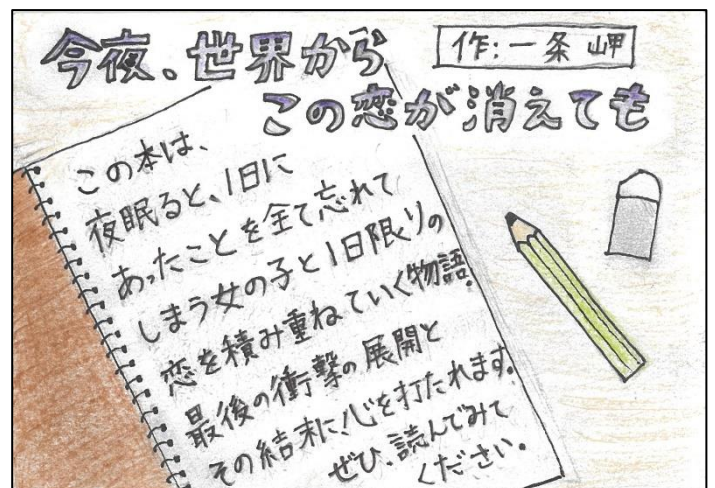 今夜、世界から
この恋が消えても
作:一条 岬
この本は、
夜眠ると、1日に
あったことを全て忘れて
しまう女の子と1日限りの
恋を積み重ねていく物語。
最後の衝撃の展開と
その結末に、心を打たれます。
ぜひ、読んでみて
ください。